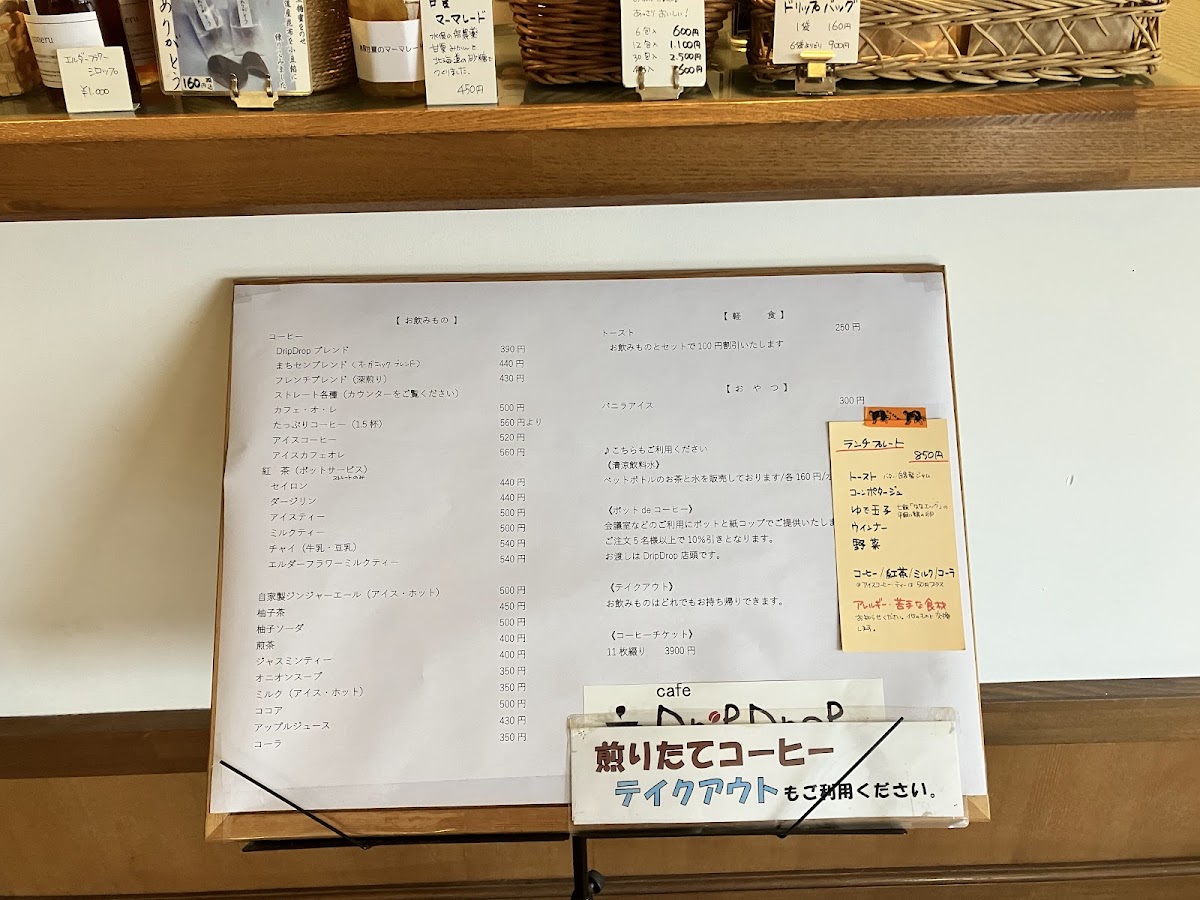 エルダーフラワー
シロップ
¥1.000
ありがとう
160円
マーマレード
水俣の無農薬
甘夏みかんと
北海道の砂糖で
つくりました。
450円
あっさりおいしい!
6包入 600円
12包入 1.100円
30包入 2.500円
ドリップバッグ
1袋 160円
900円
【お飲みもの】
コーヒー
DripDrop ブレンド 390円
まちセンブレンド(オーガニックブレンド) 440円
フレンチブレンド(深煎り) 430円
ストレート各種(カウンターをご覧ください)
カフェ・オ・レ 500円
たっぷりコーヒー(1.5杯) 560円より
アイスコーヒー 520円
アイスカフェオレ 560円
紅 茶(ポットサービス)
ストレートのみ
セイロン 440円
ダージリン 440円
アイスティー 500円
ミルクティー 500円
チャイ(牛乳・豆乳) 540円
エルダーフラワーミルクティー 540円
自家製ジンジャーエール(アイス・ホット) 500円
柚子茶 450円
柚子ソーダ 500円
煎茶 400円
ジャスミンティー 400円
オニオンスープ 350円
ミルク(アイス・ホット) 350円
ココア 500円
アップルジュース 430円
コーラ 350円
【軽 食】
トースト 250円
お飲みものとセットで100円割引いたします
【お や つ】
バニラアイス 300円
♪こちらもご利用ください
《清涼飲料水》
ペットボトルのお茶と水を販売しております/各160円/水
《ポット de コーヒー》
会議室などのご利用にポットと紙コップでご提供いたしま
ご注文5名様以上で10%引きとなります。
お渡しは DripDrop 店頭です。
《テイクアウト》
お飲みものはどれでもお持ち帰りできます。
《コーヒーチケット》
11枚綴り 3900円
ランチプレート
850円
トースト バター 自家製ジャム
コーンポタージュ
ゆで玉子
ウインナー
野菜
コーヒー/紅茶/ミルク/コーラ
※アイスコーヒー・ティーは50円プラス
アレルギー・苦手な食材
お知らせください。
します。
cafe
DripDrop
煎りたてコーヒー
テイクアウトもご利用ください。